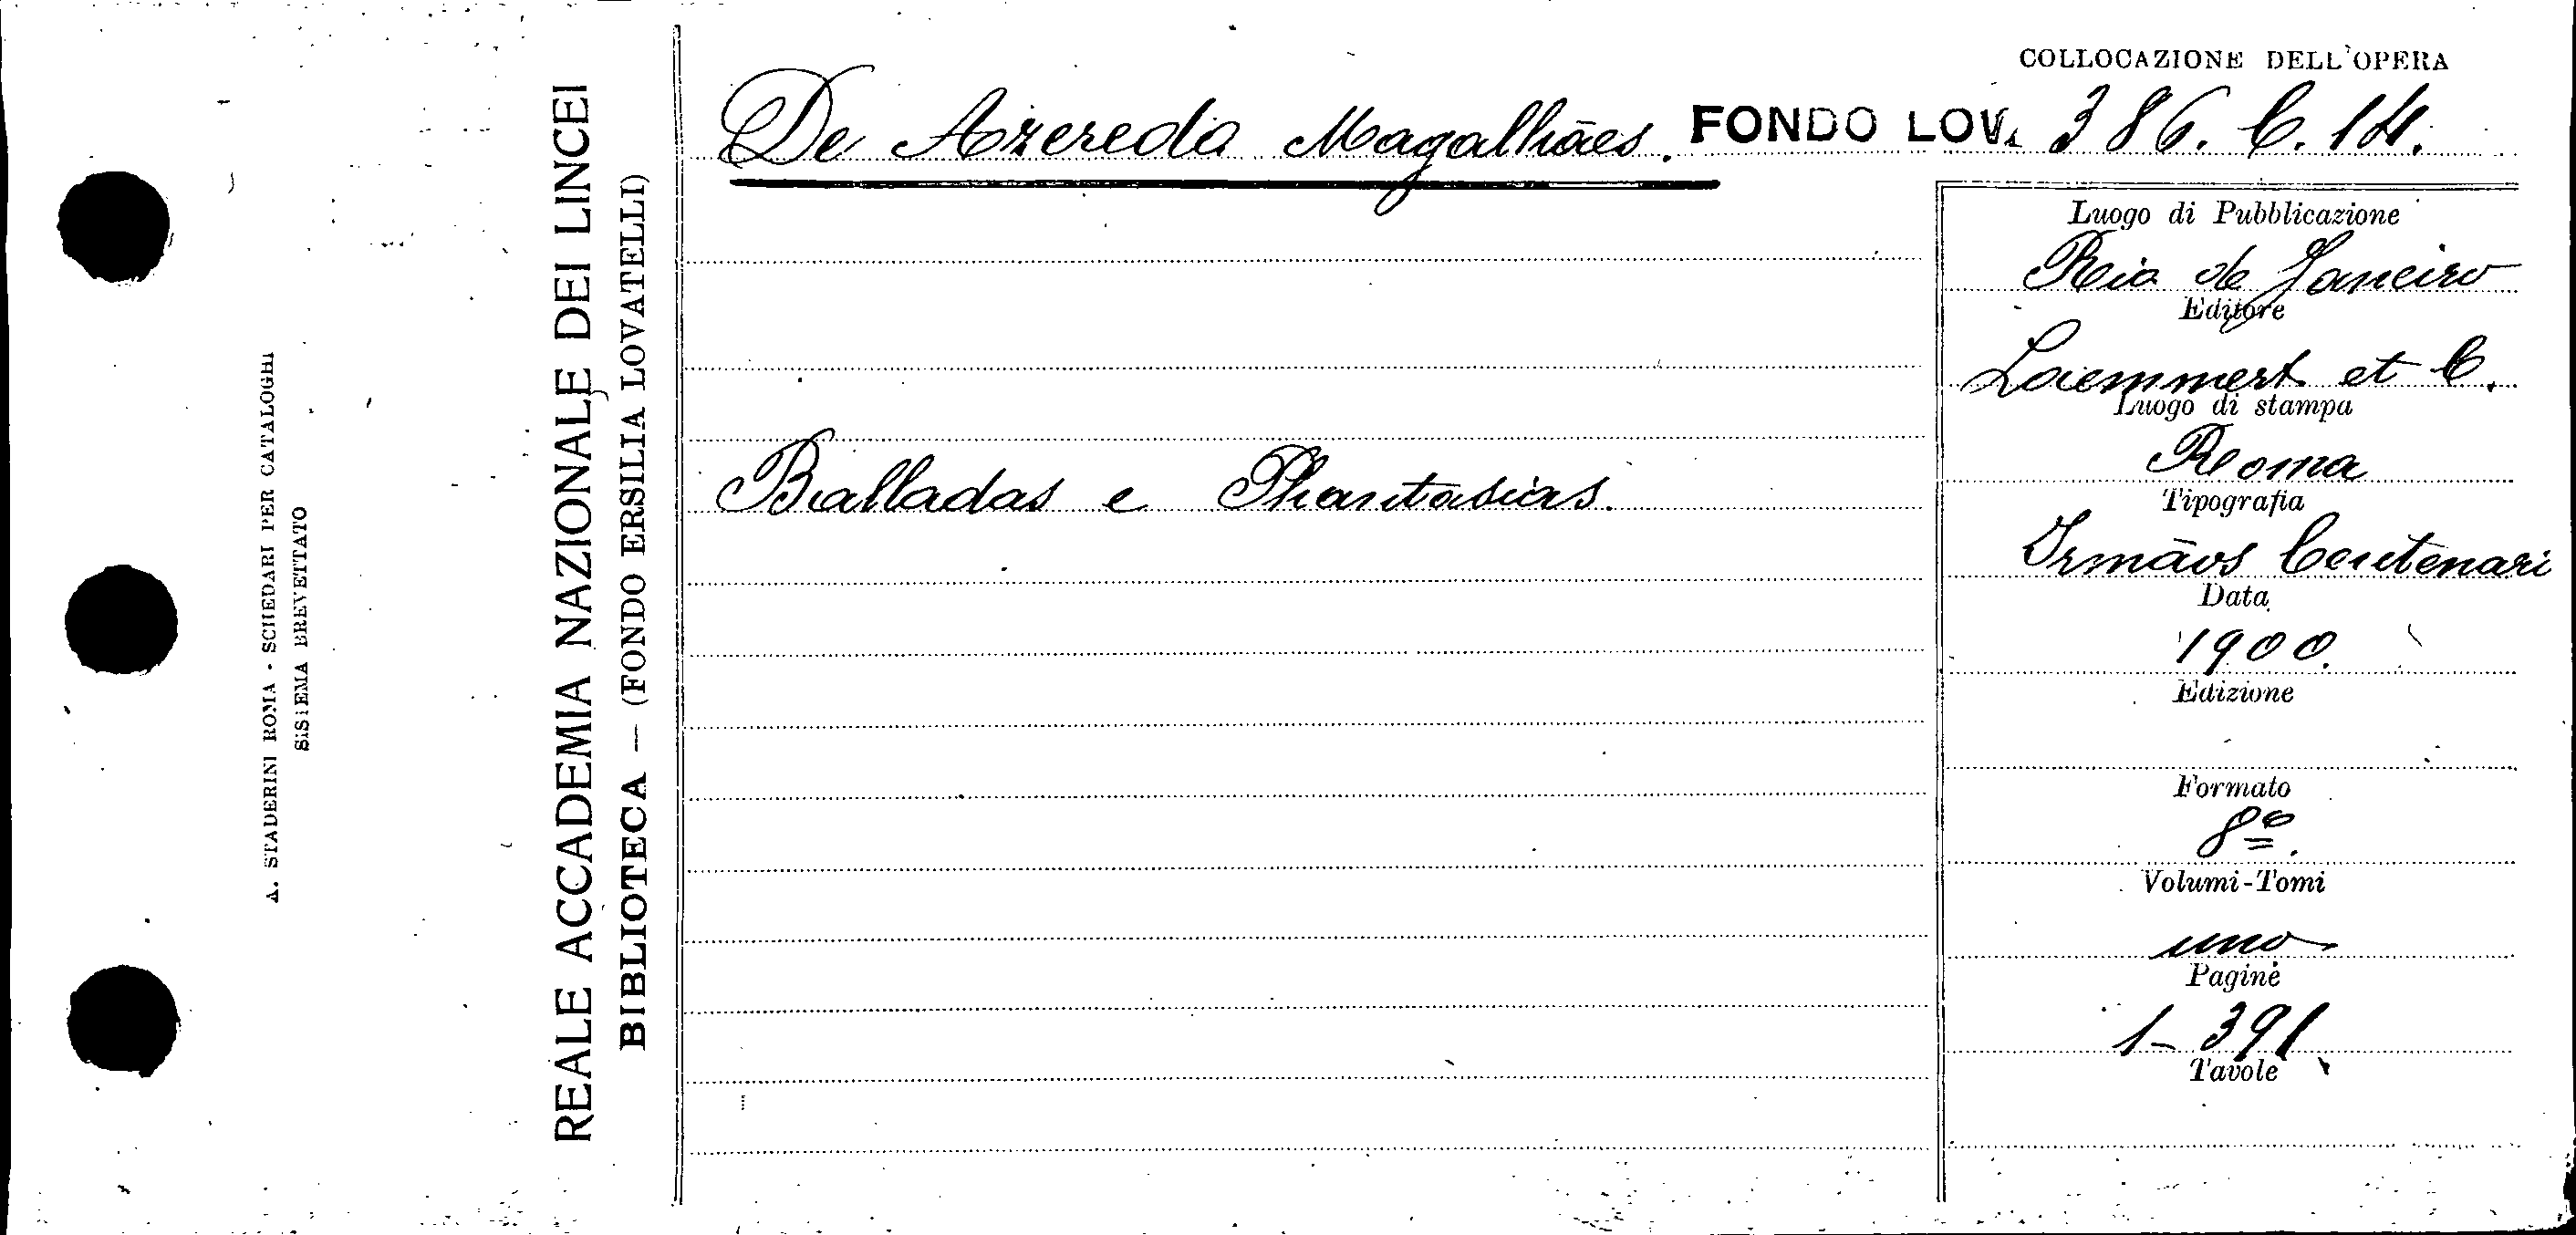 A. STADERINI ROMA - SCHEDARI PER CATALOGHI
SISTEMA BREVETTATO
REALE ACCADEMIA NAZIONALE DEI LINCEI
BIBLIOTECA — (FONDO ERSILIA LOVATELLI)
COLLOCAZIONE DELL'OPERA
De Azeredo Magalhães. FONDO LOV. 386. C. 14.
Balladas e Phantasias.
Luogo di Pubblicazione
Rio de Janeiro
Editore
Laemmert et C.
Luogo di stampa
Roma
Tipografia
Irmãos Centenari
Data
1900.
Edizione
Formato
8º.
Volumi-Tomi
uno
Pagine
1-391.
Tavole